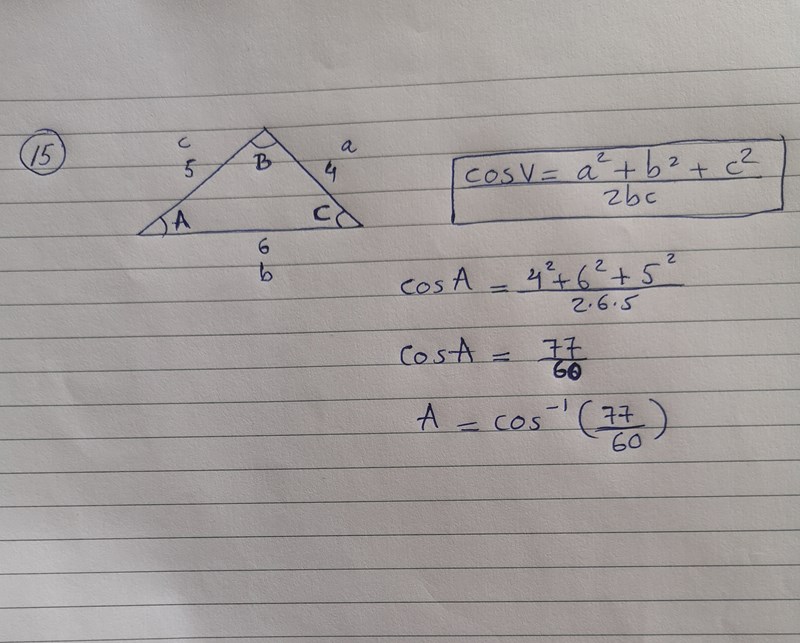 15
c
5
B
a
4
A
C
6
b
cosV = a² + b² + c² / 2bc
cosA = 4² + 6² + 5² / 2·6·5
cosA = 77 / 60
A = cos⁻¹ (77 / 60)